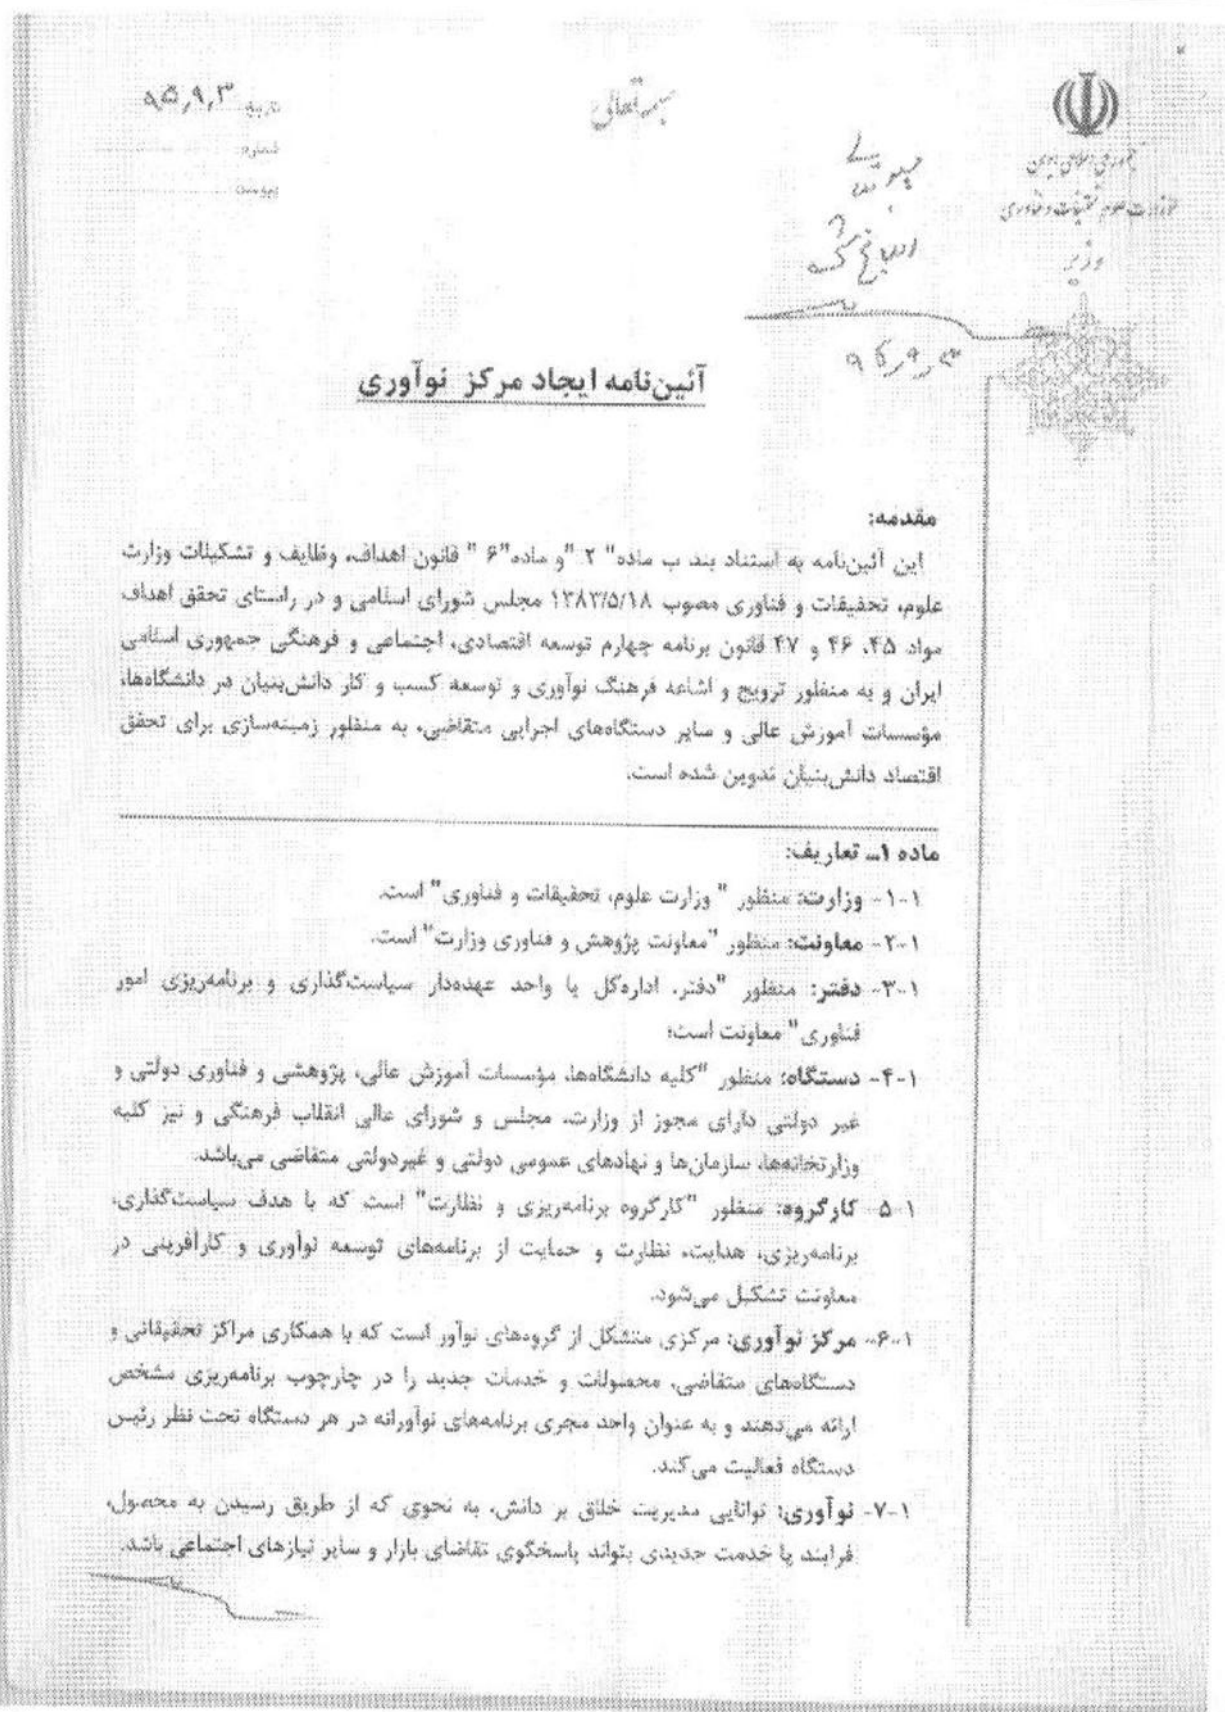 بسمه تعالی
جمهوری اسلامی ایران
وزارت علوم تحقیقات و فناوری
وزیر
تاریخ ۹۵,۹,۳
شماره
پیوست
ابلاغ
آئین‌نامه ایجاد مرکز نوآوری
مقدمه:
این آئین‌نامه به استناد بند ب ماده" ۲ "و ماده"۶ " قانون اهداف، وظایف و تشکیلات وزارت
علوم، تحقیقات و فناوری مصوب ۱۳۸۳/۵/۱۸ مجلس شورای اسلامی و در راستای تحقق اهداف
مواد ۴۵، ۴۶ و ۴۷ قانون برنامه چهارم توسعه اقتصادی، اجتماعی و فرهنگی جمهوری اسلامی
ایران و به منظور ترویج و اشاعه فرهنگ نوآوری و توسعه کسب و کار دانش‌بنیان در دانشگاه‌ها،
مؤسسات آموزش عالی و سایر دستگاه‌های اجرایی متقاضی، به منظور زمینه‌سازی برای تحقق
اقتصاد دانش‌بنیان تدوین شده است.
ماده ۱ـ تعاریف:
۱-۱- وزارت: منظور " وزارت علوم، تحقیقات و فناوری" است.
۱-۲- معاونت: منظور "معاونت پژوهش و فناوری وزارت" است.
۱-۳- دفتر: منظور "دفتر، اداره‌کل یا واحد عهده‌دار سیاست‌گذاری و برنامه‌ریزی امور
فناوری" معاونت است؛
۱-۴- دستگاه: منظور "کلیه دانشگاه‌ها، مؤسسات آموزش عالی، پژوهشی و فناوری دولتی و
غیر دولتی دارای مجوز از وزارت، مجلس و شورای عالی انقلاب فرهنگی و نیز کلیه
وزارتخانه‌ها، سازمان‌ها و نهادهای عمومی دولتی و غیردولتی متقاضی می‌باشد.
۱-۵- کارگروه: منظور "کارگروه برنامه‌ریزی و نظارت" است که با هدف سیاست‌گذاری،
برنامه‌ریزی، هدایت، نظارت و حمایت از برنامه‌های توسعه نوآوری و کارآفرینی در
معاونت تشکیل می‌شود.
۱-۶- مرکز نوآوری: مرکزی متشکل از گروه‌های نوآور است که با همکاری مراکز تحقیقاتی و
دستگاه‌های متقاضی، محصولات و خدمات جدید را در چارچوب برنامه‌ریزی مشخص
ارائه می‌دهند و به عنوان واحد مجری برنامه‌های نوآورانه در هر دستگاه تحت نظر رئیس
دستگاه فعالیت می‌کند.
۱-۷- نوآوری: توانایی مدیریت خلاق بر دانش، به نحوی که از طریق رسیدن به محصول،
فرایند یا خدمت جدیدی بتواند پاسخگوی تقاضای بازار و سایر نیازهای اجتماعی باشد.